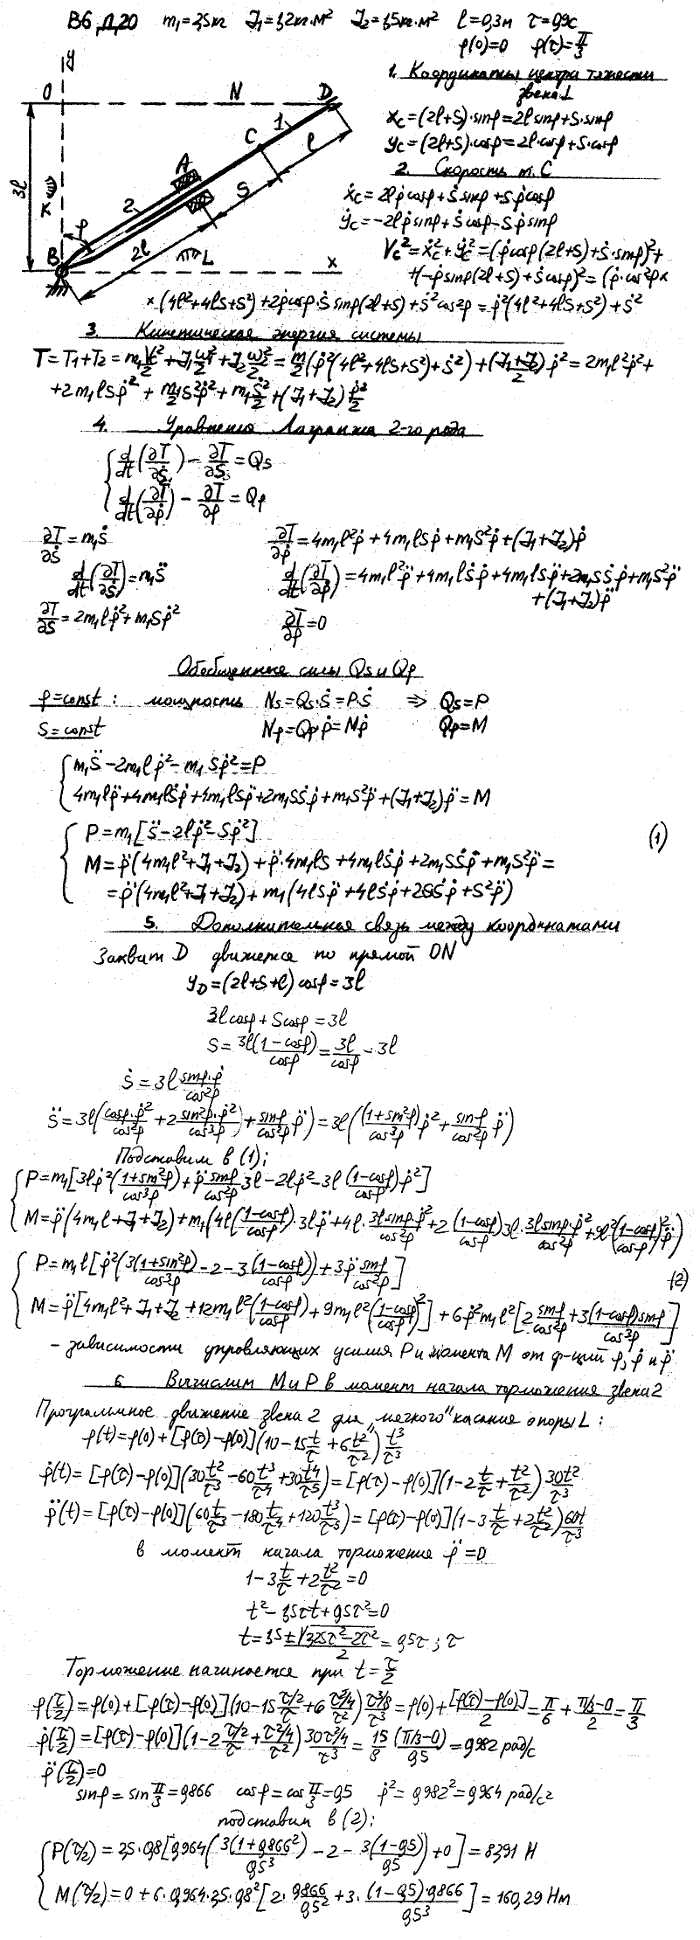 В6 Д.20 m₁=2,5кг J₁=1,2кг·м² J₂=1,5кг·м² l=0,3м τ=0,9с
φ(0)=0 φ(τ)=π/3
1. Координаты центра тяжести
звена 1
x_C=(2l+S)·sinφ=2l sinφ+S·sinφ
y_C=(2l+S)·cosφ=2l·cosφ+S·cosφ
2. Скорость т. C
ẋ_C=2lφ̇cosφ+Ṡsinφ+Sφ̇cosφ
ẏ_C=-2lφ̇sinφ+Ṡcosφ-Sφ̇sinφ
V_C²=ẋ_C²+ẏ_C²=(φ̇cosφ(2l+S)+Ṡ·sinφ)²+
+(-φ̇sinφ(2l+S)+Ṡcosφ)²=(φ̇·cos²φ×
×(4l²+4lS+S²)+2φ̇cosφ·Ṡsinφ(2l+S)+Ṡ²cos²φ=φ̇²(4l²+4lS+S²)+Ṡ²
y
O N D
1
C
l
A
S
2
3l
K
φ
2l
L
B x
3. Кинетическая энергия системы
T=T₁+T₂=m₁V²/2+J₁ω²/2+J₂ω²/2=m/2(φ̇²(4l²+4lS+S²)+Ṡ²)+(J₁+J₂)/2 φ̇²=2m₁l²φ̇²+
+2m₁lSφ̇²+m₁/2 S²φ̇²+m₁Ṡ²/2+(J₁+J₂)φ̇²/2
4. Уравнения Лагранжа 2-го рода
{ d/dt(∂T/∂Ṡ)-∂T/∂S=Q_S
d/dt(∂T/∂φ̇)-∂T/∂φ=Q_φ
∂T/∂Ṡ=m₁Ṡ ∂T/∂φ̇=4m₁l²φ̇+4m₁lSφ̇+m₁S²φ̇+(J₁+J₂)φ̇
d/dt(∂T/∂Ṡ)=m₁S̈ d/dt(∂T/∂φ̇)=4m₁l²φ̈+4m₁lṠφ̇+4m₁lSφ̈+2m₁SṠφ̇+m₁S²φ̈
+(J₁+J₂)φ̈
∂T/∂S=2m₁lφ̇²+m₁Sφ̇² ∂T/∂φ=0
Обобщенные силы Q_S и Q_φ
φ=const: мощность N_S=Q_S·Ṡ=P·Ṡ ⇒ Q_S=P
S=const N_φ=Q_φφ̇=Mφ̇ Q_φ=M
{ m₁S̈-2m₁lφ̇²-m₁Sφ̇²=P
4m₁lφ̈+4m₁lṠφ̇+4m₁lSφ̈+2m₁SṠφ̇+m₁S²φ̈+(J₁+J₂)φ̈=M
{ P=m₁[S̈-2lφ̇²-Sφ̇²] (1)
M=φ̈(4m₁l²+J₁+J₂)+φ̈·4m₁lS+4m₁lṠφ̇+2m₁SṠφ̇+m₁S²φ̈=
=φ̈(4m₁l²+J₁+J₂)+m₁(4lSφ̈+4lṠφ̇+2SṠφ̇+S²φ̈)
5. Дополнительная связь между координатами
Захват D движется по прямой ON
y_D=(2l+S+l)cosφ=3l
3lcosφ+Scosφ=3l
S=3l(1-cosφ)/cosφ=3l/cosφ-3l
Ṡ=3l sinφ·φ̇/cos²φ
S̈=3l(cosφ·φ̇²/cos²φ+2sin²φ·φ̇²/cos³φ+sinφ/cos²φ φ̈)=3l((1+sin²φ)/cos³φ φ̇²+sinφ/cos²φ φ̈)
Подставим в (1):
{ P=m₁[3lφ̇²(1+sin²φ)/cos³φ+φ̈ sinφ/cos²φ 3l-2lφ̇²-3l(1-cosφ)/cosφ φ̇²]
M=φ̈(4m₁l+J₁+J₂)+m₁(4l(1-cosφ)/cosφ·3lφ̈+4l·3lsinφ·φ̇²/cos²φ+2(1-cosφ)/cosφ 3l·3lsinφ·φ̇²/cos²φ+9l²((1-cosφ)/cosφ)²·φ̈)
{ P=m₁l[φ̇²(3(1+sin²φ)/cos³φ-2-3(1-cosφ)/cosφ)+3φ̈ sinφ/cos²φ] (2)
M=φ̈[4m₁l²+J₁+J₂+12m₁l²(1-cosφ)/cosφ+9m₁l²((1-cosφ)/cosφ)²]+6φ̇²m₁l²[2sinφ/cos²φ+3(1-cosφ)sinφ/cos³φ]
- зависимости управляющих усилия P и момента M от ф-ций φ, φ̇ и φ̈
6 Вычислим M и P в момент начала торможения звена 2
Программное движение звена 2 для "мягкого" касания опоры L:
φ(t)=φ(0)+[φ(τ)-φ(0)](10-15t/τ+6t²/τ²)t³/τ³
φ̇(t)=[φ(τ)-φ(0)](30t²/τ³-60t³/τ⁴+30t⁴/τ⁵)=[φ(τ)-φ(0)](1-2t/τ+t²/τ²)30t²/τ³
φ̈(t)=[φ(τ)-φ(0)](60t/τ³-180t²/τ⁴+120t³/τ⁵)=[φ(τ)-φ(0)](1-3t/τ+2t²/τ²)60t/τ³
в момент начала торможения φ̈=0
1-3t/τ+2t²/τ²=0
t²-1,5τt+0,5τ²=0
t=(1,5±√(2,25τ²-2τ²))/2=0,5τ; τ
Торможение начинается при t=τ/2
φ(τ/2)=φ(0)+[φ(τ)-φ(0)](10-15τ/2/τ+6τ²/4/τ²)τ³/8/τ³=φ(0)+[φ(τ)-φ(0)]/2=π/6+(π/3-0)/2=π/3
φ̇(τ/2)=[φ(τ)-φ(0)](1-2τ/2/τ+τ²/4/τ²)30τ²/4/τ³=15/8 (π/3-0)/0,5=0,982 рад/с
φ̈(τ/2)=0
sinφ=sinπ/3=0,866 cosφ=cosπ/3=0,5 φ̇²=0,982²=0,964 рад/с²
подставим в (2):
{ P(τ/2)=2,5·0,8[0,964(3(1+0,866²)/0,5³-2-3(1-0,5)/0,5)+0]=83,91 Н
M(τ/2)=0+6·0,964·2,5·0,8²[2·0,866/0,5²+3·(1-0,5)0,866/0,5³]=160,29 Нм